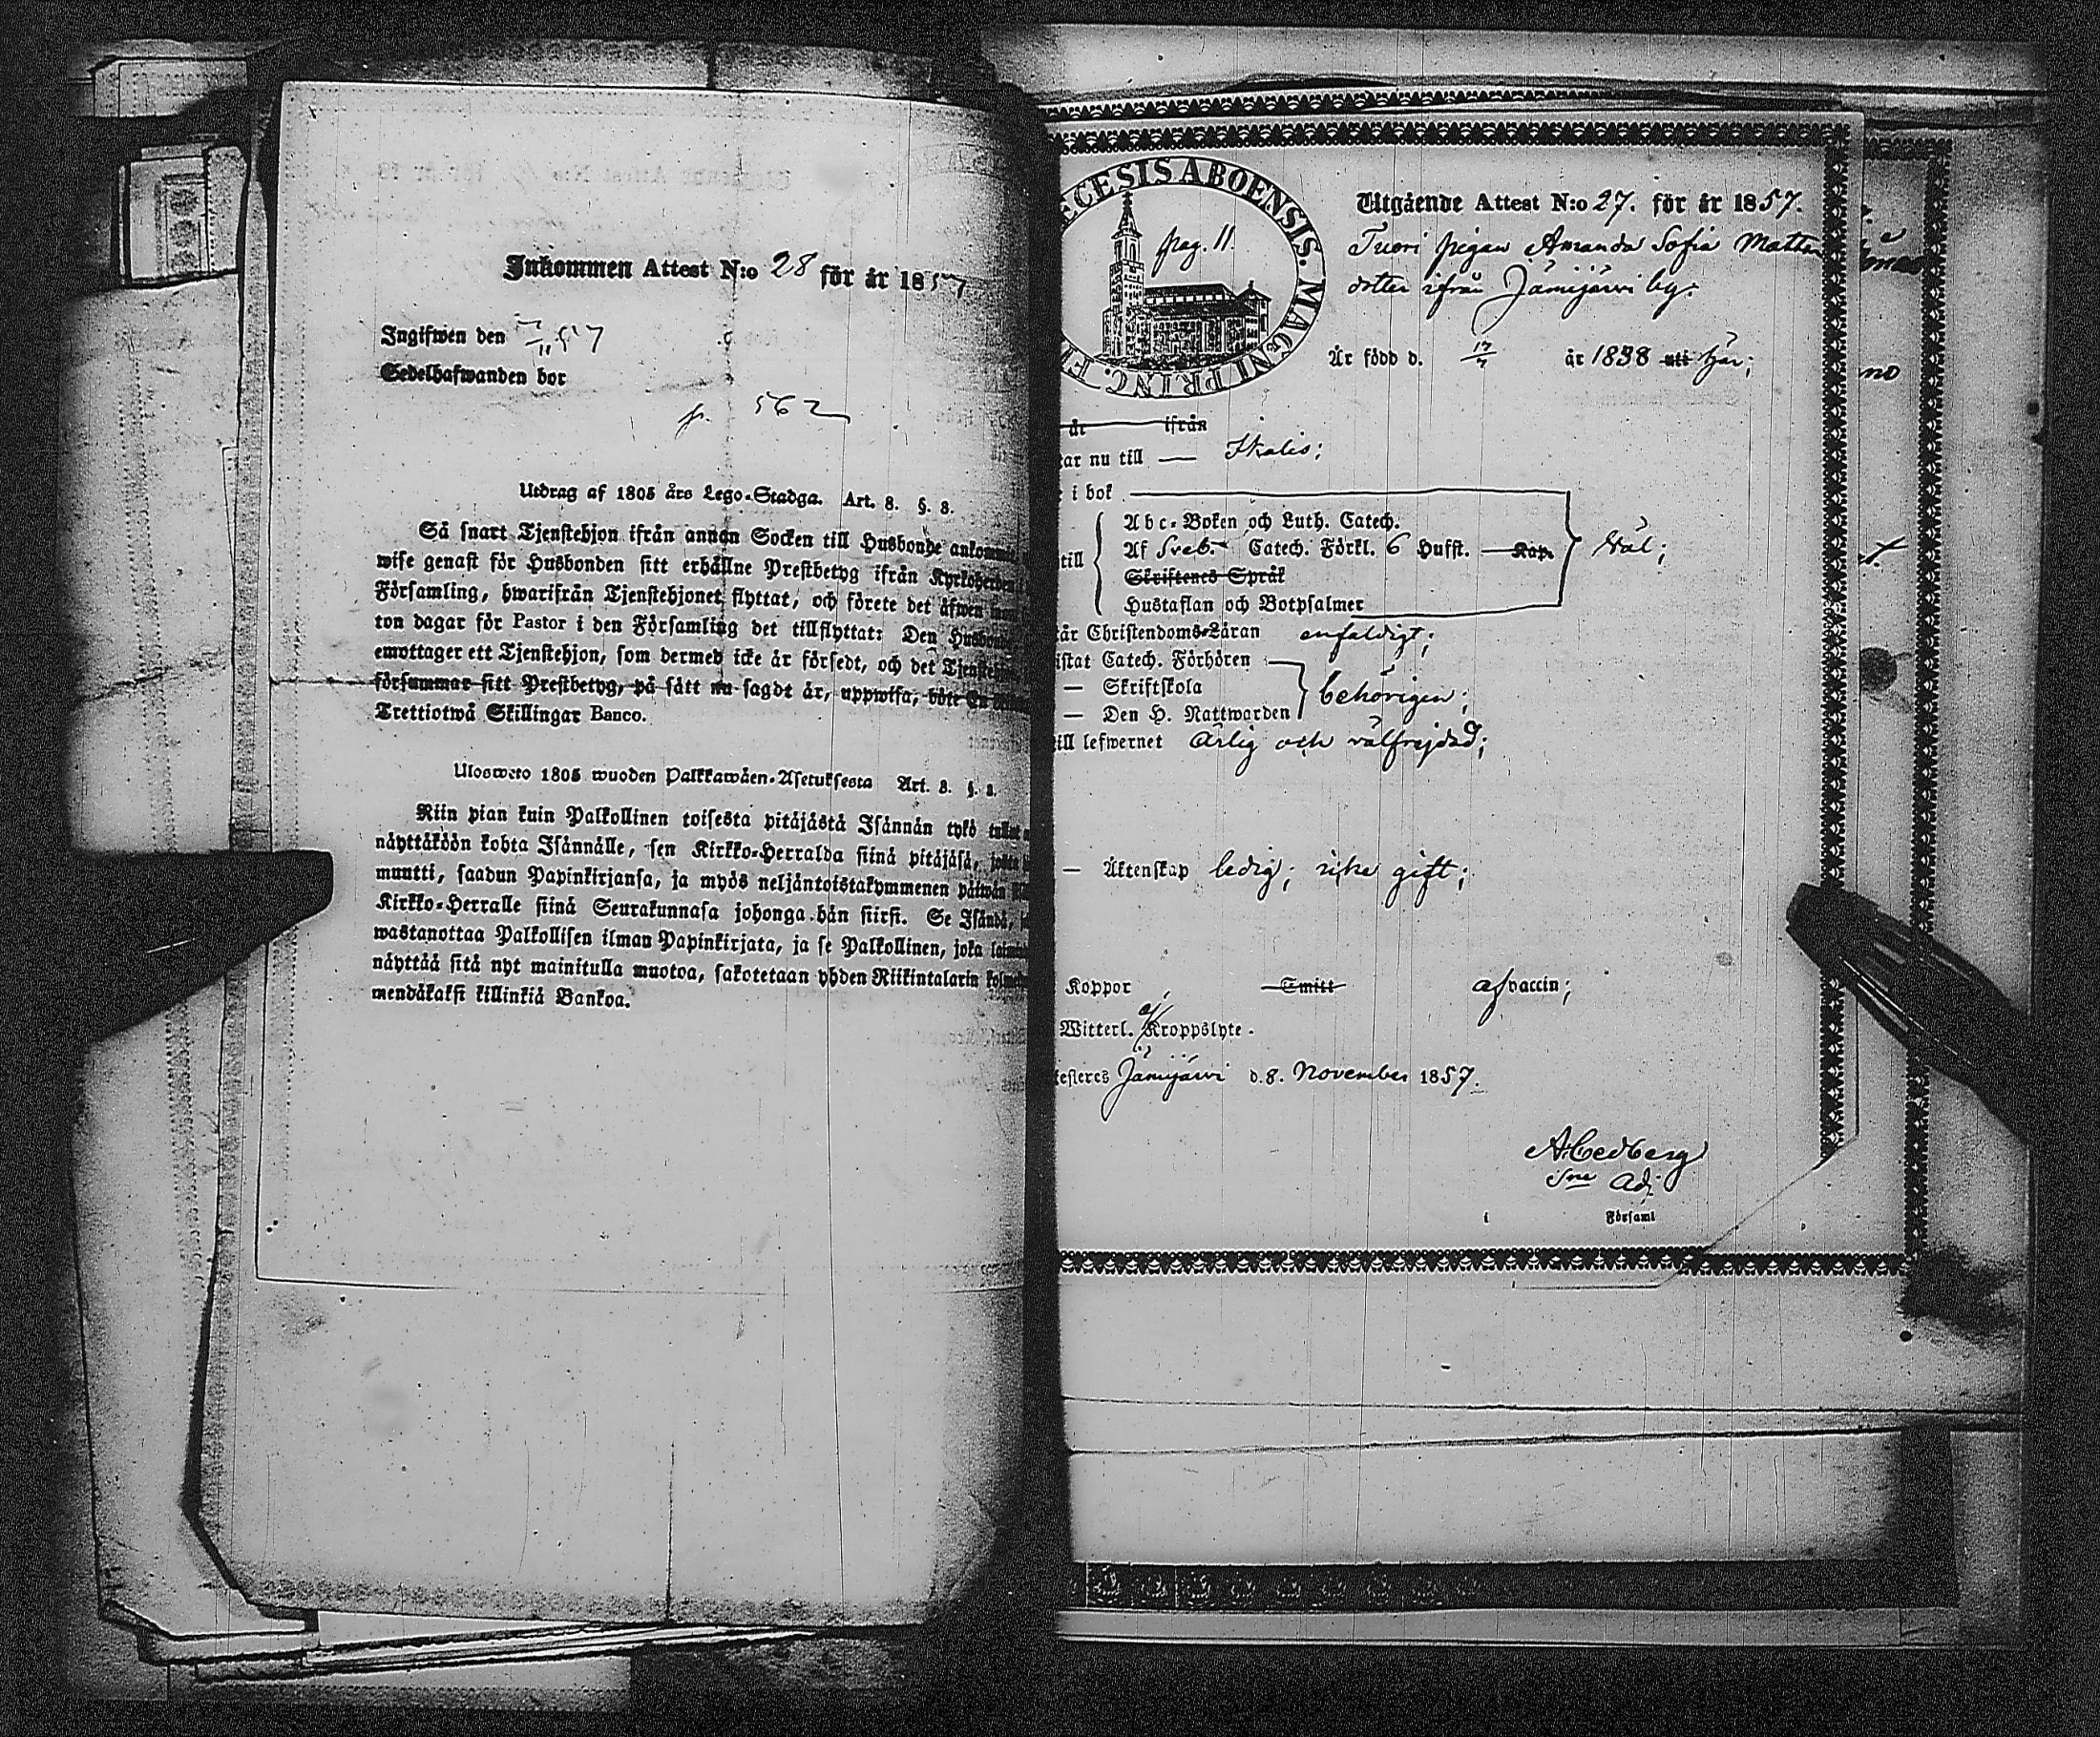 Inkommen Attest N:o 28 för år 1857
Ingifwen den 7/11 57
Sedelhafwanden bor
p. 562
Utdrag af 1805 års Lego-Stadga. Art. 8. §. 8.
Så snart Tjenstehjon ifrån annan Socken till Husbonde ankommit
wise genast för Husbonden sitt erhållne Prestbetyg ifrån Kyrkoherden
Församling, hwarifrån Tjenstehjonet flyttat, och förete det äfwen inom
ton dagar för Pastor i den Församling det tillflyttat: Den Husbonde
emottager ett Tjenstehjon, som dermed icke är försedt, och det Tjenstehjon
försummar sitt Prestbetyg, på sätt nu sagdt är, uppwisa, böte En
Trettiotwå Skillingar Banco.
Ulosweto 1805 wuoden Palkkawäen-Asetuksesta Art. 8. §. 8.
Niin pian kuin Palkollinen toisesta pitäjästä Isännän tykö tullut
näyttäköön kohta Isännälle, sen Kirkko-Herralda siinä pitäjäsä, josta
muutti, saadun Papinkirjansa, ja myös neljäntoistakymmenen päiwän
Kirkko-Herralle siinä Seurakunnasa johonga hän siirsi. Se Isändä,
wastanottaa Palkollisen ilman Papinkirjata, ja se Palkollinen, joka
näyttää sitä nyt mainitulla muotoa, sakotetaan yhden Riikintalarin
mendäkaksi killinkiä Bankoa.
ECESIS ABOENSIS. MAGNI PRINC. F
pag. 11.
Utgående Attest N:o 27. för år 1857.
Tuori pigan Amanda Sofia Matts
dotter ifrån Jämijärvi by.
Är född d. 17/7 år 1838 att här;
år ifrån
ar nu till — Ikalis;
i bok
till
Abc-Boken och Luth. Catech.
Af Sveb. Catech. Förkl. 6 Hufst. — Kap.
Skriftenes Språk
Hustaflan och Botpsalmer
Väl;
år Christendoms-Läran enfaldigt;
istat Catech. Förhören
— Skriftskola
— Den H. Nattwarden
behörigen;
ill lefwernet ärlig och välfrejdad;
— Äktenskap ledig; icke gift;
Koppor Smitt af vaccin;
Witterl. ej Kroppslyte.
testeres Jämijärvi d. 8. November 1857.
A Cedberg
Adj.
i Församl